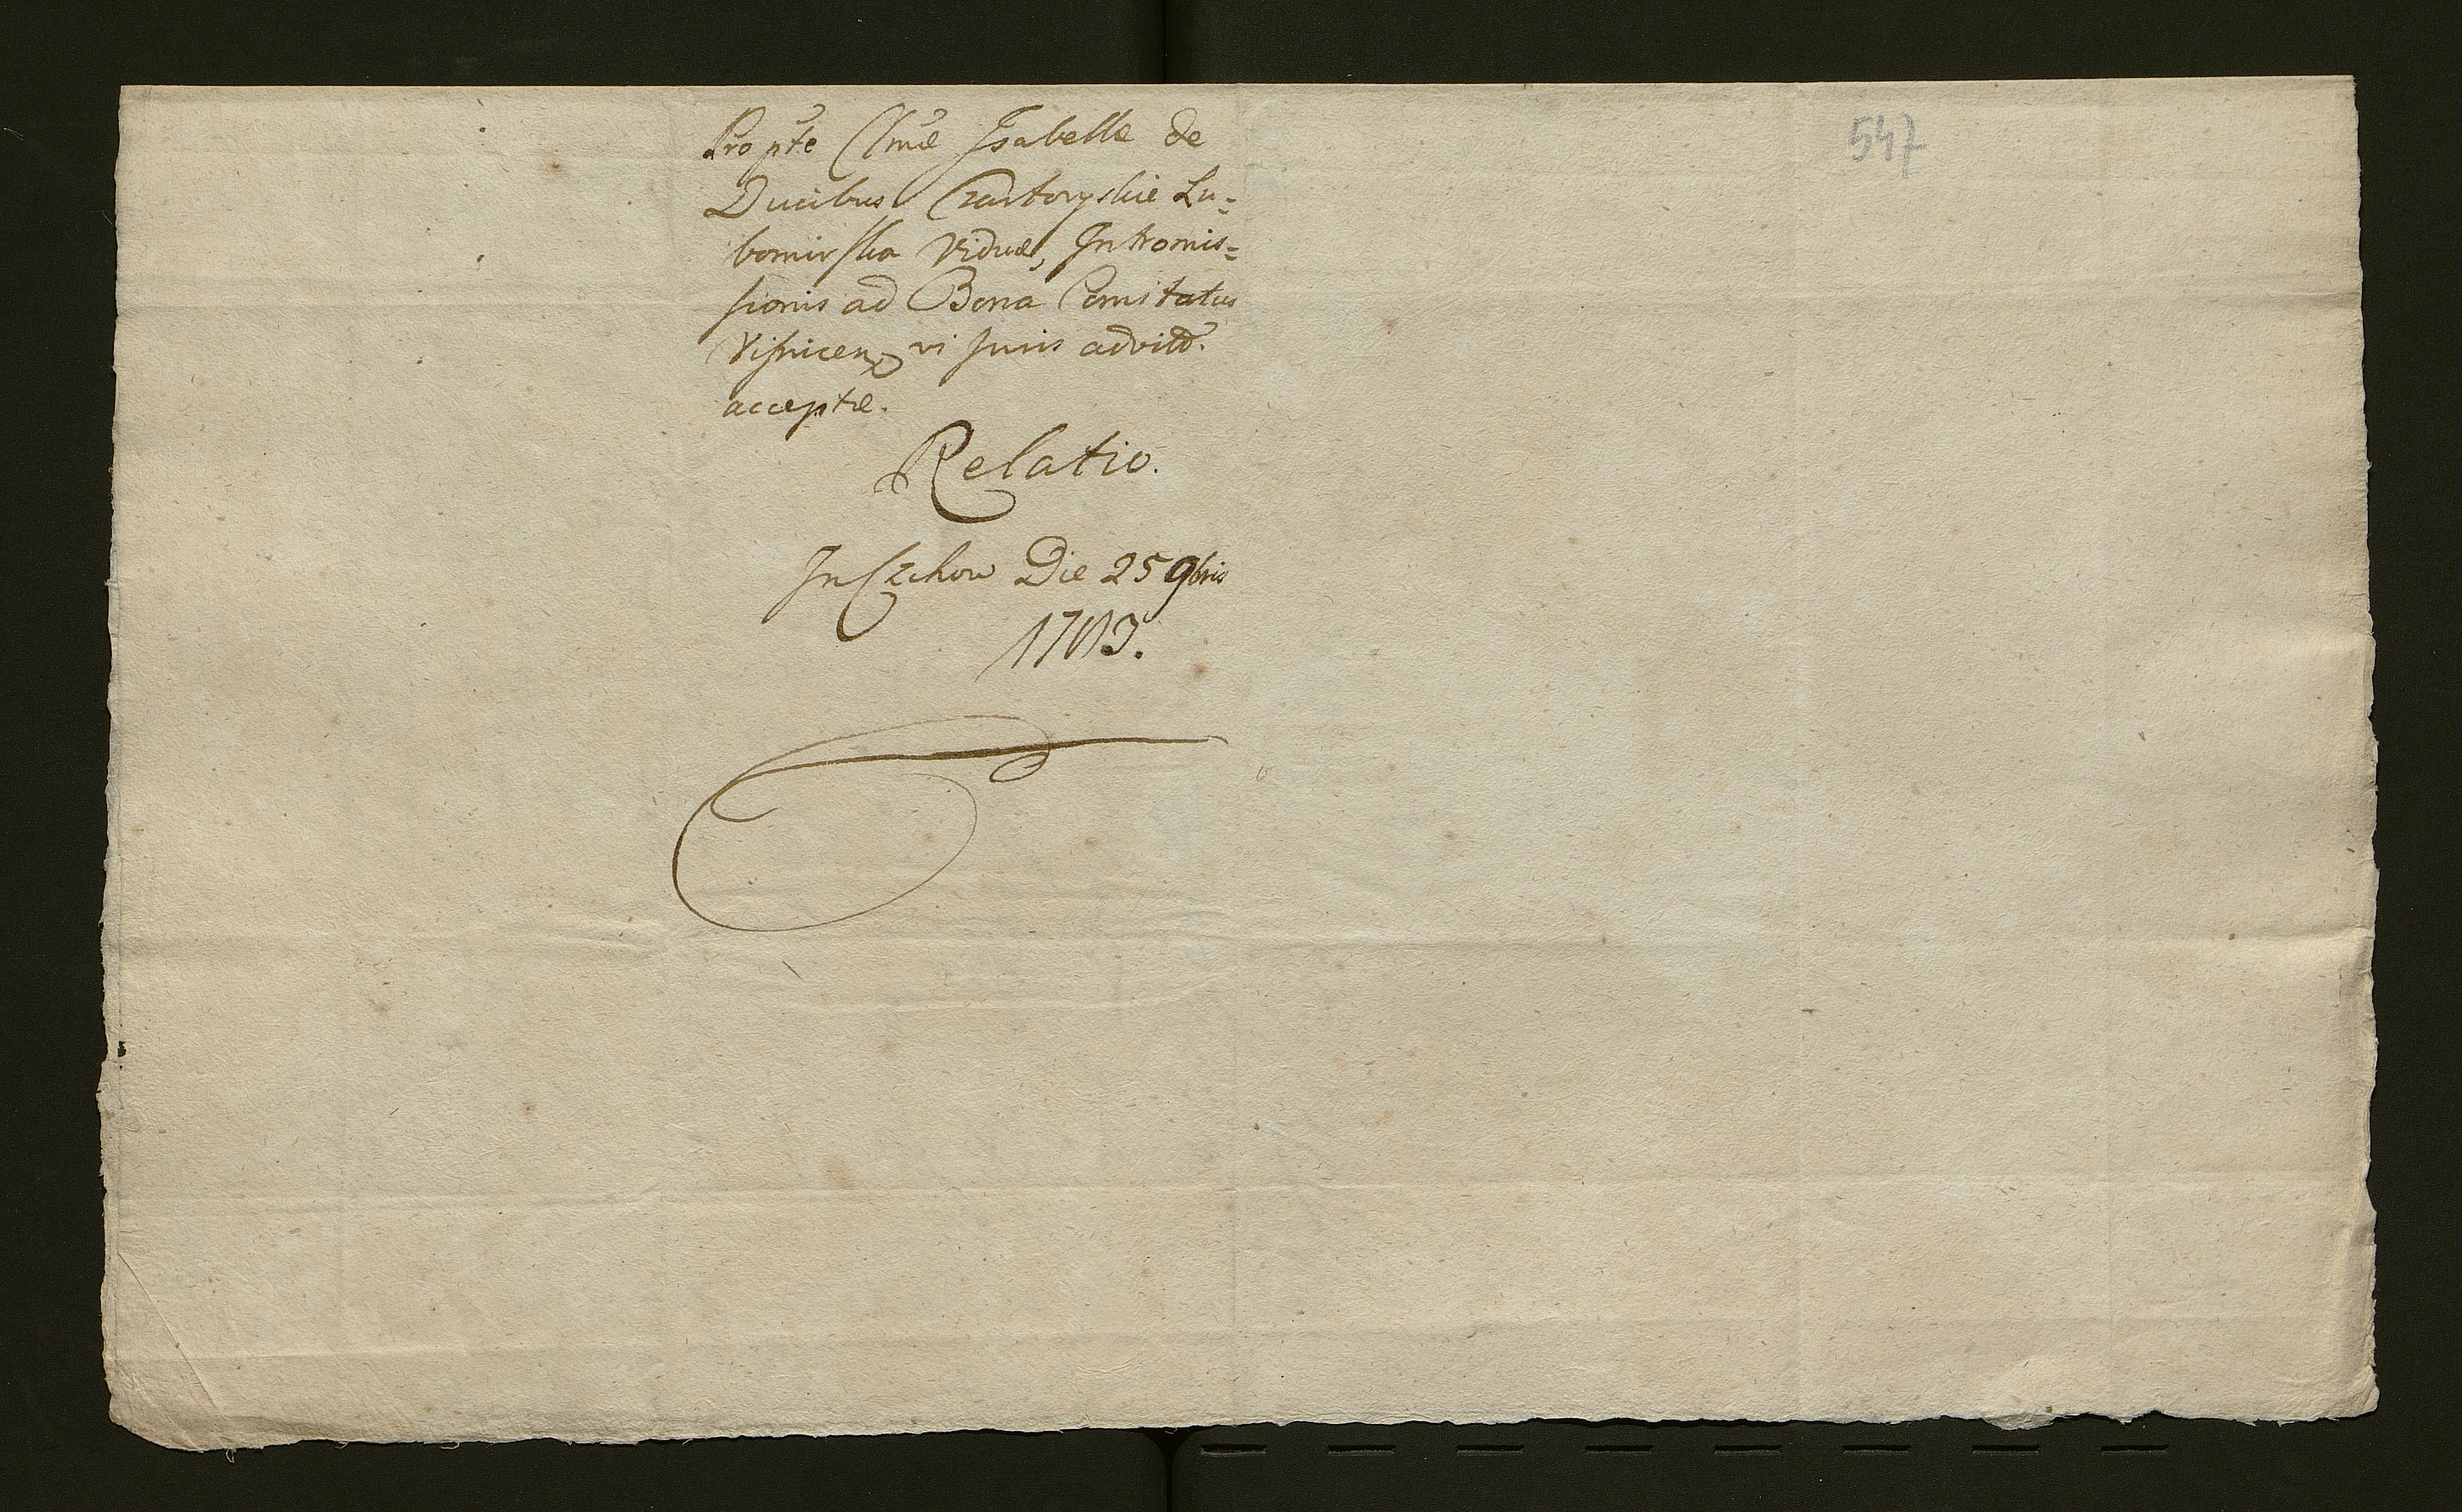 Pro pte Clmæ Isabellæ de
Ducibus Czartoryskie Lu=
bomirska Viduæ, Intromis=
sionis ad Bona Comitatus
Visnicen vi Juris advit.
acceptæ.
Relatio.
In Czchow Die 25 9bris
547